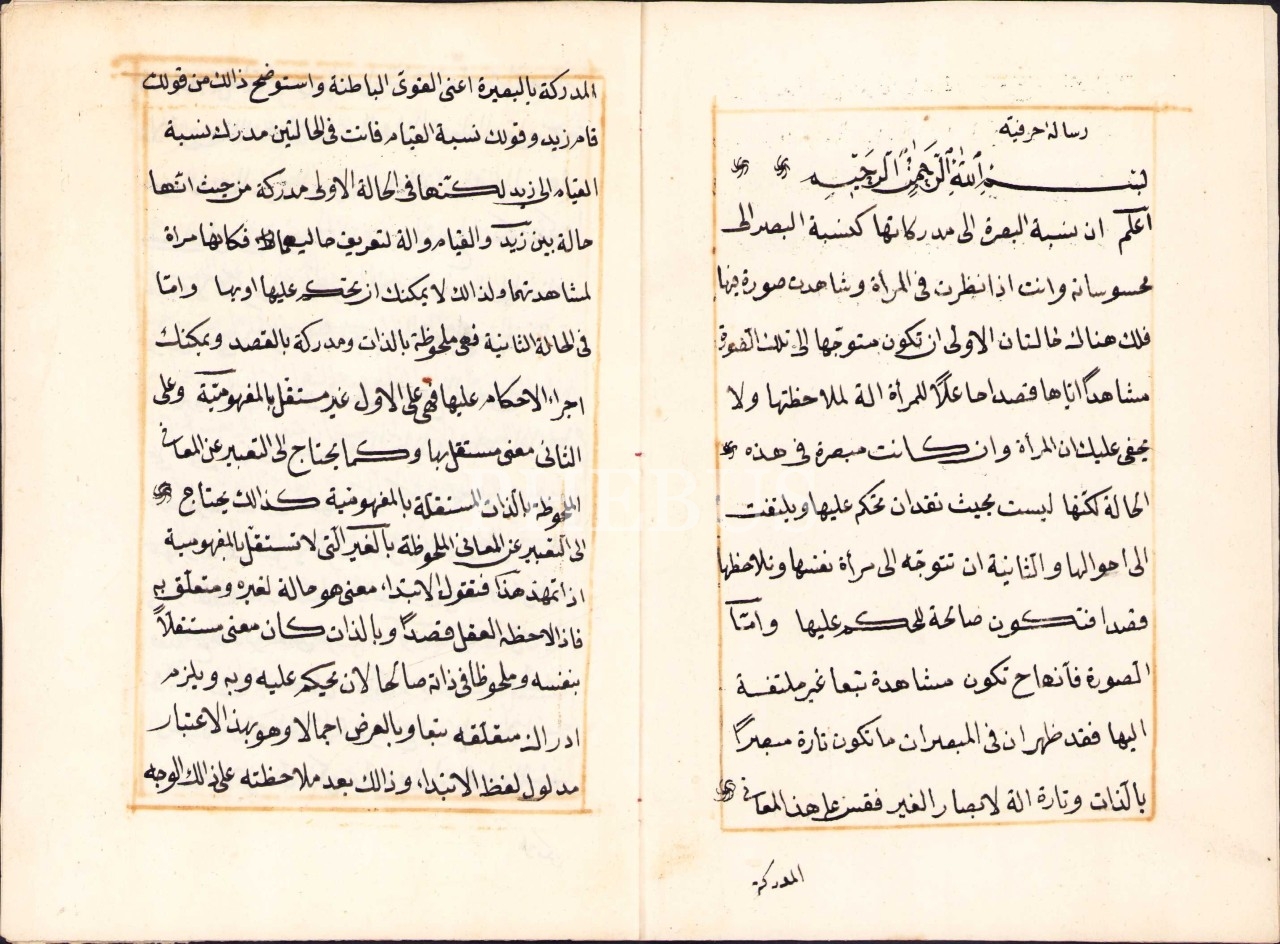 رسالة حرفية
بسم الله الرحمن الرحيم
اعلم ان نسبة البصرة الى مدركاتها كنسبة البصر الى
محسوساته وانت اذا نظرت فى المرأة وشاهدت صورة فيها
فلك هناك حالتان الاولى ان تكون متوجّها الى تلك الصورة
مشاهداً ايّاها قصدا جاعلاً للمرأة الة لملاحظتها ولا
يخفى عليك ان المرأة وان كانت مبصرة فى هذه
الحالة لكنّها ليست بحيث نقدان تحكم عليها ويلتفت
الى أحوالها والثانية ان تتوجّه الى مرأة نفسها وتلاحظها
قصدا فتكون صالحة للحكم عليها وامّا
الصورة فأنها ح تكون مشاهدة تبعا غير ملتفسة
اليها فقد ظهر ان فى المبصرات ما تكون تارة مبصراً
بالذات وتارة الة لابصار الغير فقس على هذا المعانى
المدركة
المدركة بالبصيرة اعنى القوى الباطنة واستوضح ذالك من قولك
قام زيد وقولك نسبة القيام فانت فى الحالتين مدرك نسبة
القيام الى زيد لكنّها فى الحالة الاولى مدركة من حيث انّها
حالة بين زيد والقيام والة لتعريف حاليهما فكانها مراة
لمشاهدتهما ولذالك لا يمكنك ان تحكم عليها او بها وامّا
فى الحالة الثانية فهى ملحوظة بالذات ومدركة بالقصد ويمكنك
اجراء الاحكام عليها فهى على الاول غير مستقل بالمفهوميّة وعلى
الثانى معنى مستقل بها وكما يحتاج الى التعبير عن المعانى
الملحوظة بالذات المستقلة بالمفهومية كذالك يحتاج
الى التعبير عن المعانى الملحوظة بالغير الّتى لا تستقلّ بالمفهومية
اذا تمهد هذا فنقول الابتداء معنى هو حالة لغيره ومتعلّق به
فاذا لاحظه العقل قصداً وبالذات كان معنى مستقلاً
بنفسه وملحوظا فى ذاته صالحا لان يحكم عليه وبه ويلزم
ادراك متعلّقه تبعا وبالعرض اجمالا وهو بهذا الاعتبار
مدلول لفظ الابتداء وذالك بعد ملاحظته على ذالك الوجه